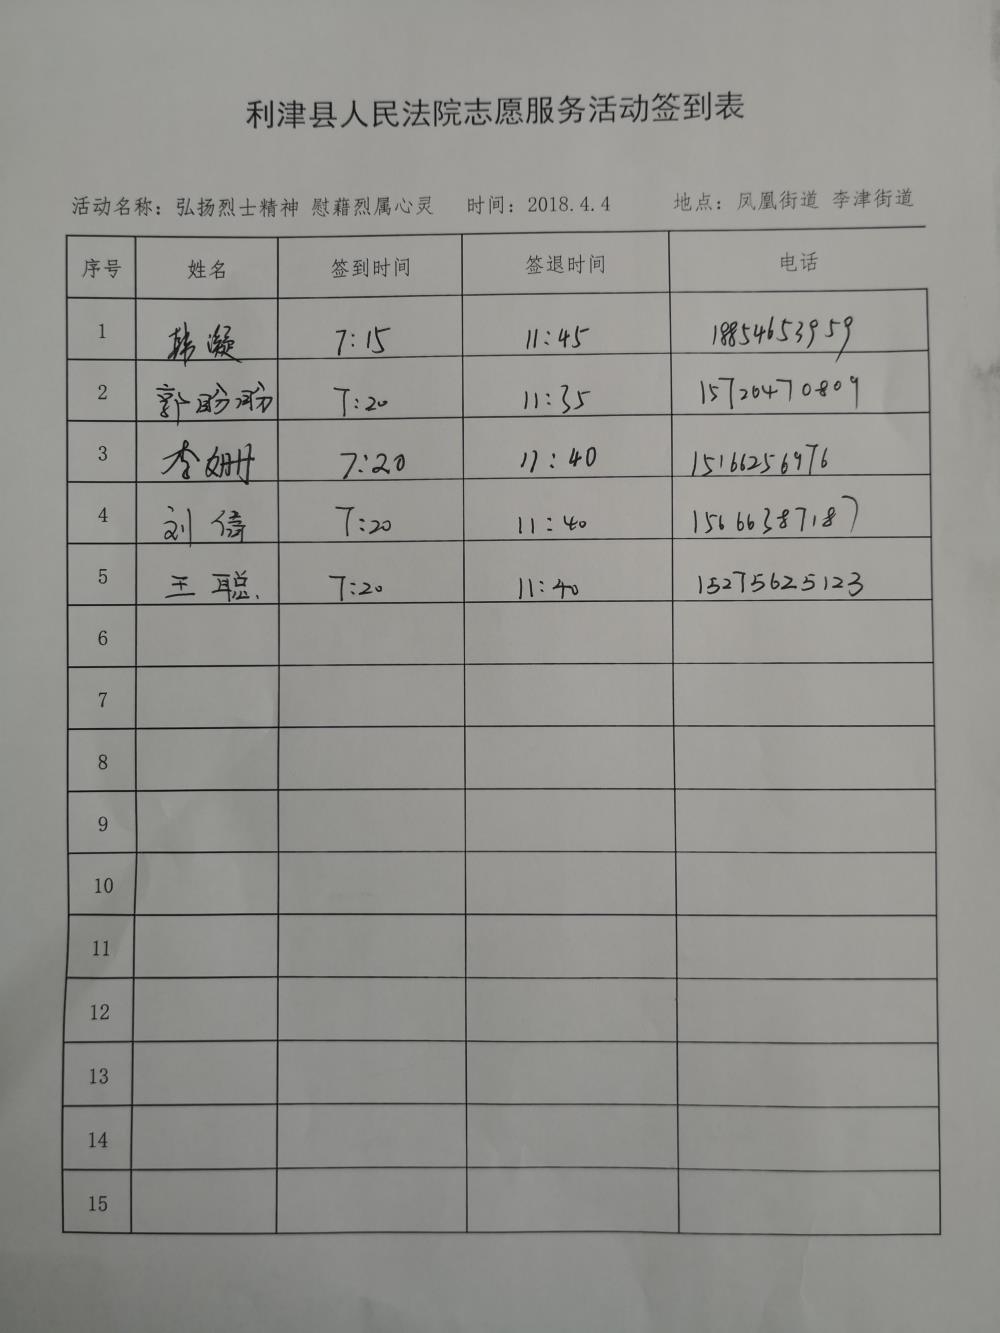 利津县人民法院志愿服务活动签到表
活动名称：弘扬烈士精神 慰藉烈属心灵 时间：2018.4.4 地点：凤凰街道 李津街道
序号 姓名 签到时间 签退时间 电话
1 韩凝 7:15 11:45 18854653959
2 郭盼盼 7:20 11:35 15720470809
3 李姗 7:20 11:40 15166256976
4 刘倚 7:20 11:40 15666387187
5 王聪 7:20 11:40 15275625123
6
7
8
9
10
11
12
13
14
15